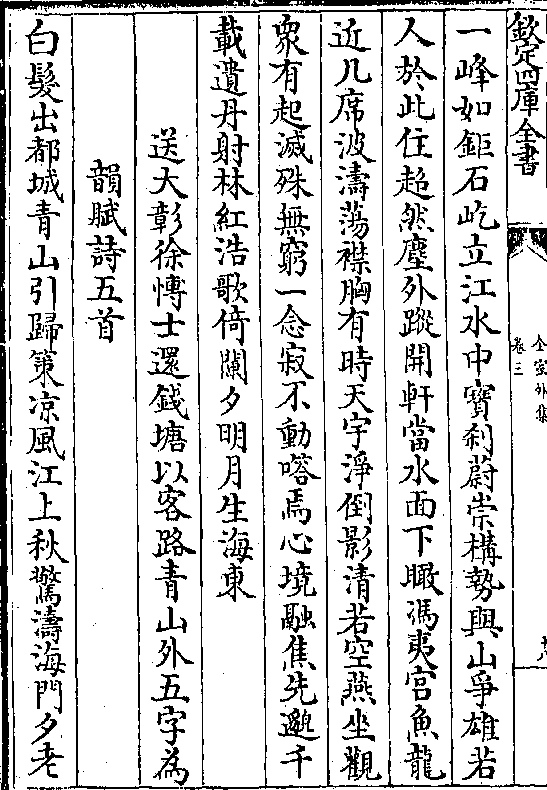 欽定四庫全書
全室外集
卷三
十八
一峰如鉅石屹立江水中寶剎蔚崇構勢與山爭雄若
人於此住超然塵外蹤開軒當水面下瞰馮夷宫魚龍
近几席波濤蕩襟胸有時天宇淨倒影清若空燕坐觀
衆有起滅殊無窮一念寂不動嗒焉心境融焦先邈千
載遺丹射林紅浩歌倚闌夕明月生海東
送大彰徐愽士還錢塘以客路青山外五字為
韻賦詩五首
白髮出都城青山引歸策凉風江上秋驚濤海門夕老